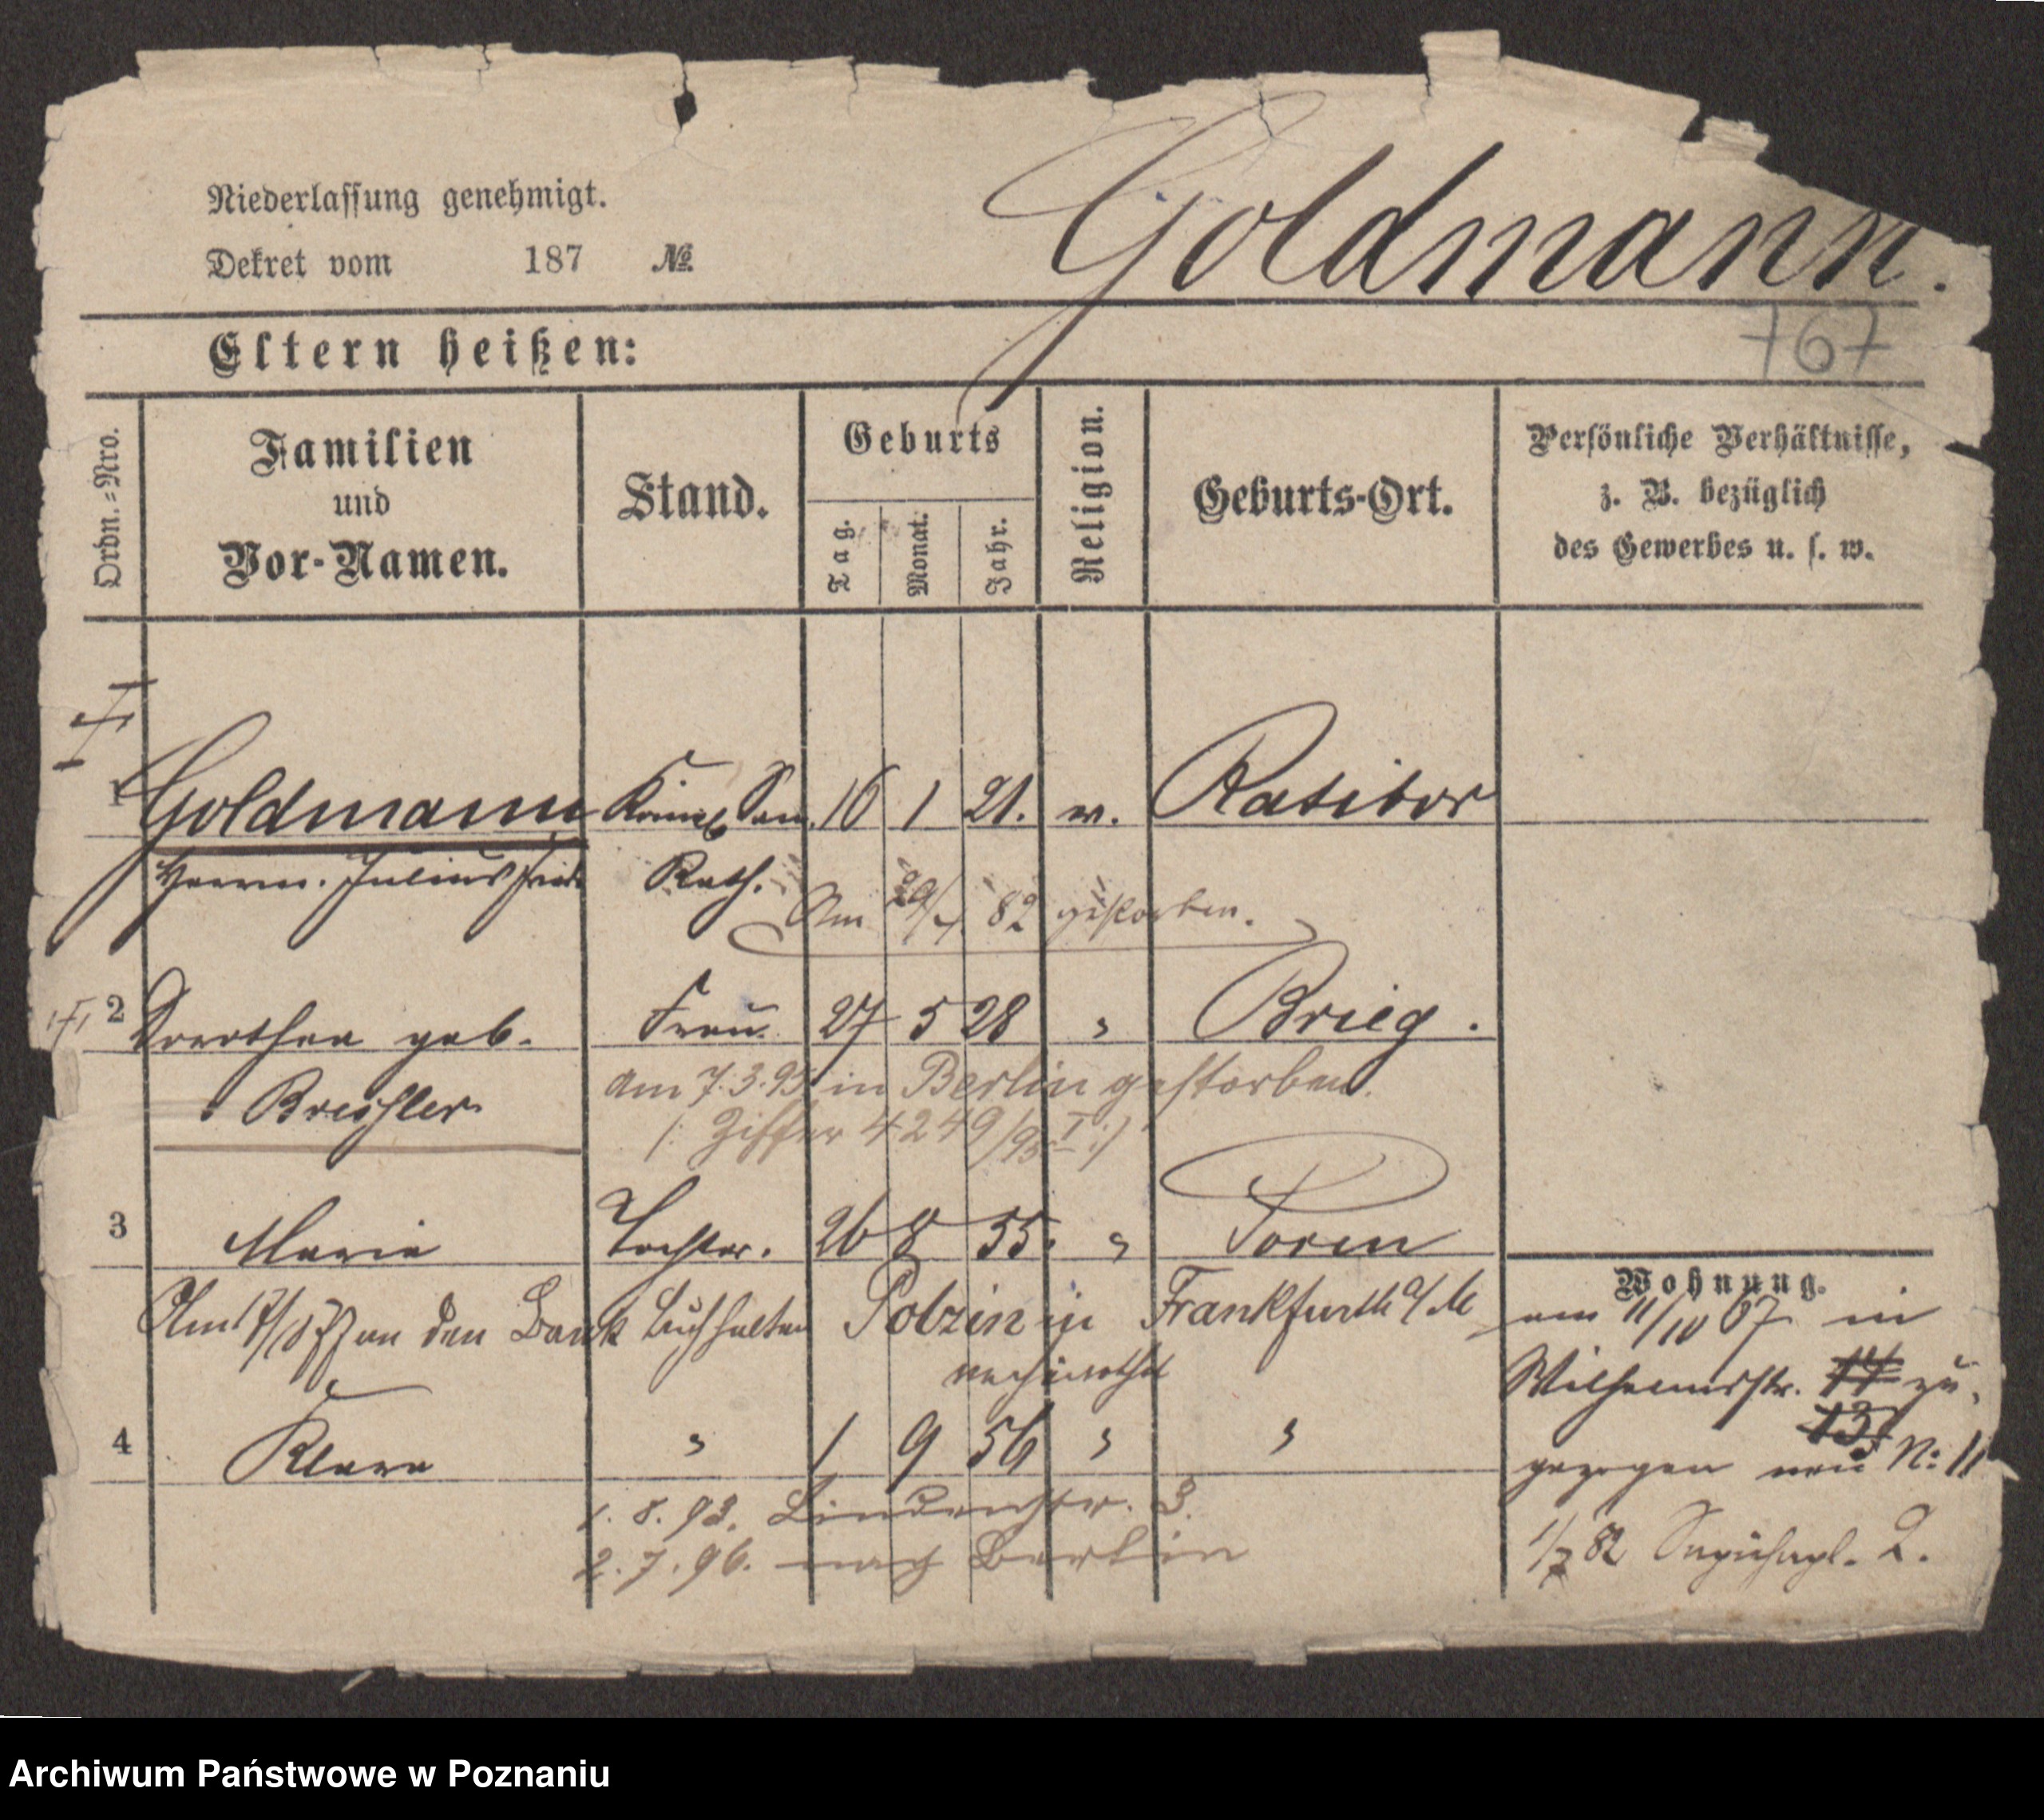 Niederlassung genehmigt.
Dekret vom 187 No.
Goldmann.
767
Eltern heißen:
Ordn.-Nro.
Familien
und
Vor-Namen.
Stand.
Geburts
Tag.
Monat.
Jahr.
Religion.
Geburts-Ort.
Persönliche Verhältnisse,
z. B. bezüglich
des Gewerbes u. s. w.
1 Goldmann 16 1 21. Ratibor
Herrm. Julius Rath.
Am 29/4 82 gestorben.
2 Dorothea geb. Frau 27 5 28 " Brieg.
am 7.3.95 in Berlin gestorben.
(: Ziffer 4249/95 I :)
3 Marie Tochter. 26 8 55. " Posen
an den Bank Buchhalter Polzin in Frankfurth a/M
verheirathet
4 Klara " 1 9 56 " "
1.8.93. Lindenstr. 3.
2.7.96. nach Berlin
Wohnung.
am 11/10 67 in
Wilhelmsstr. 14 zu-
13
gezogen neu N: 11
1/7 82 Sapiehapl. 2.
Archiwum Państwowe w Poznaniu